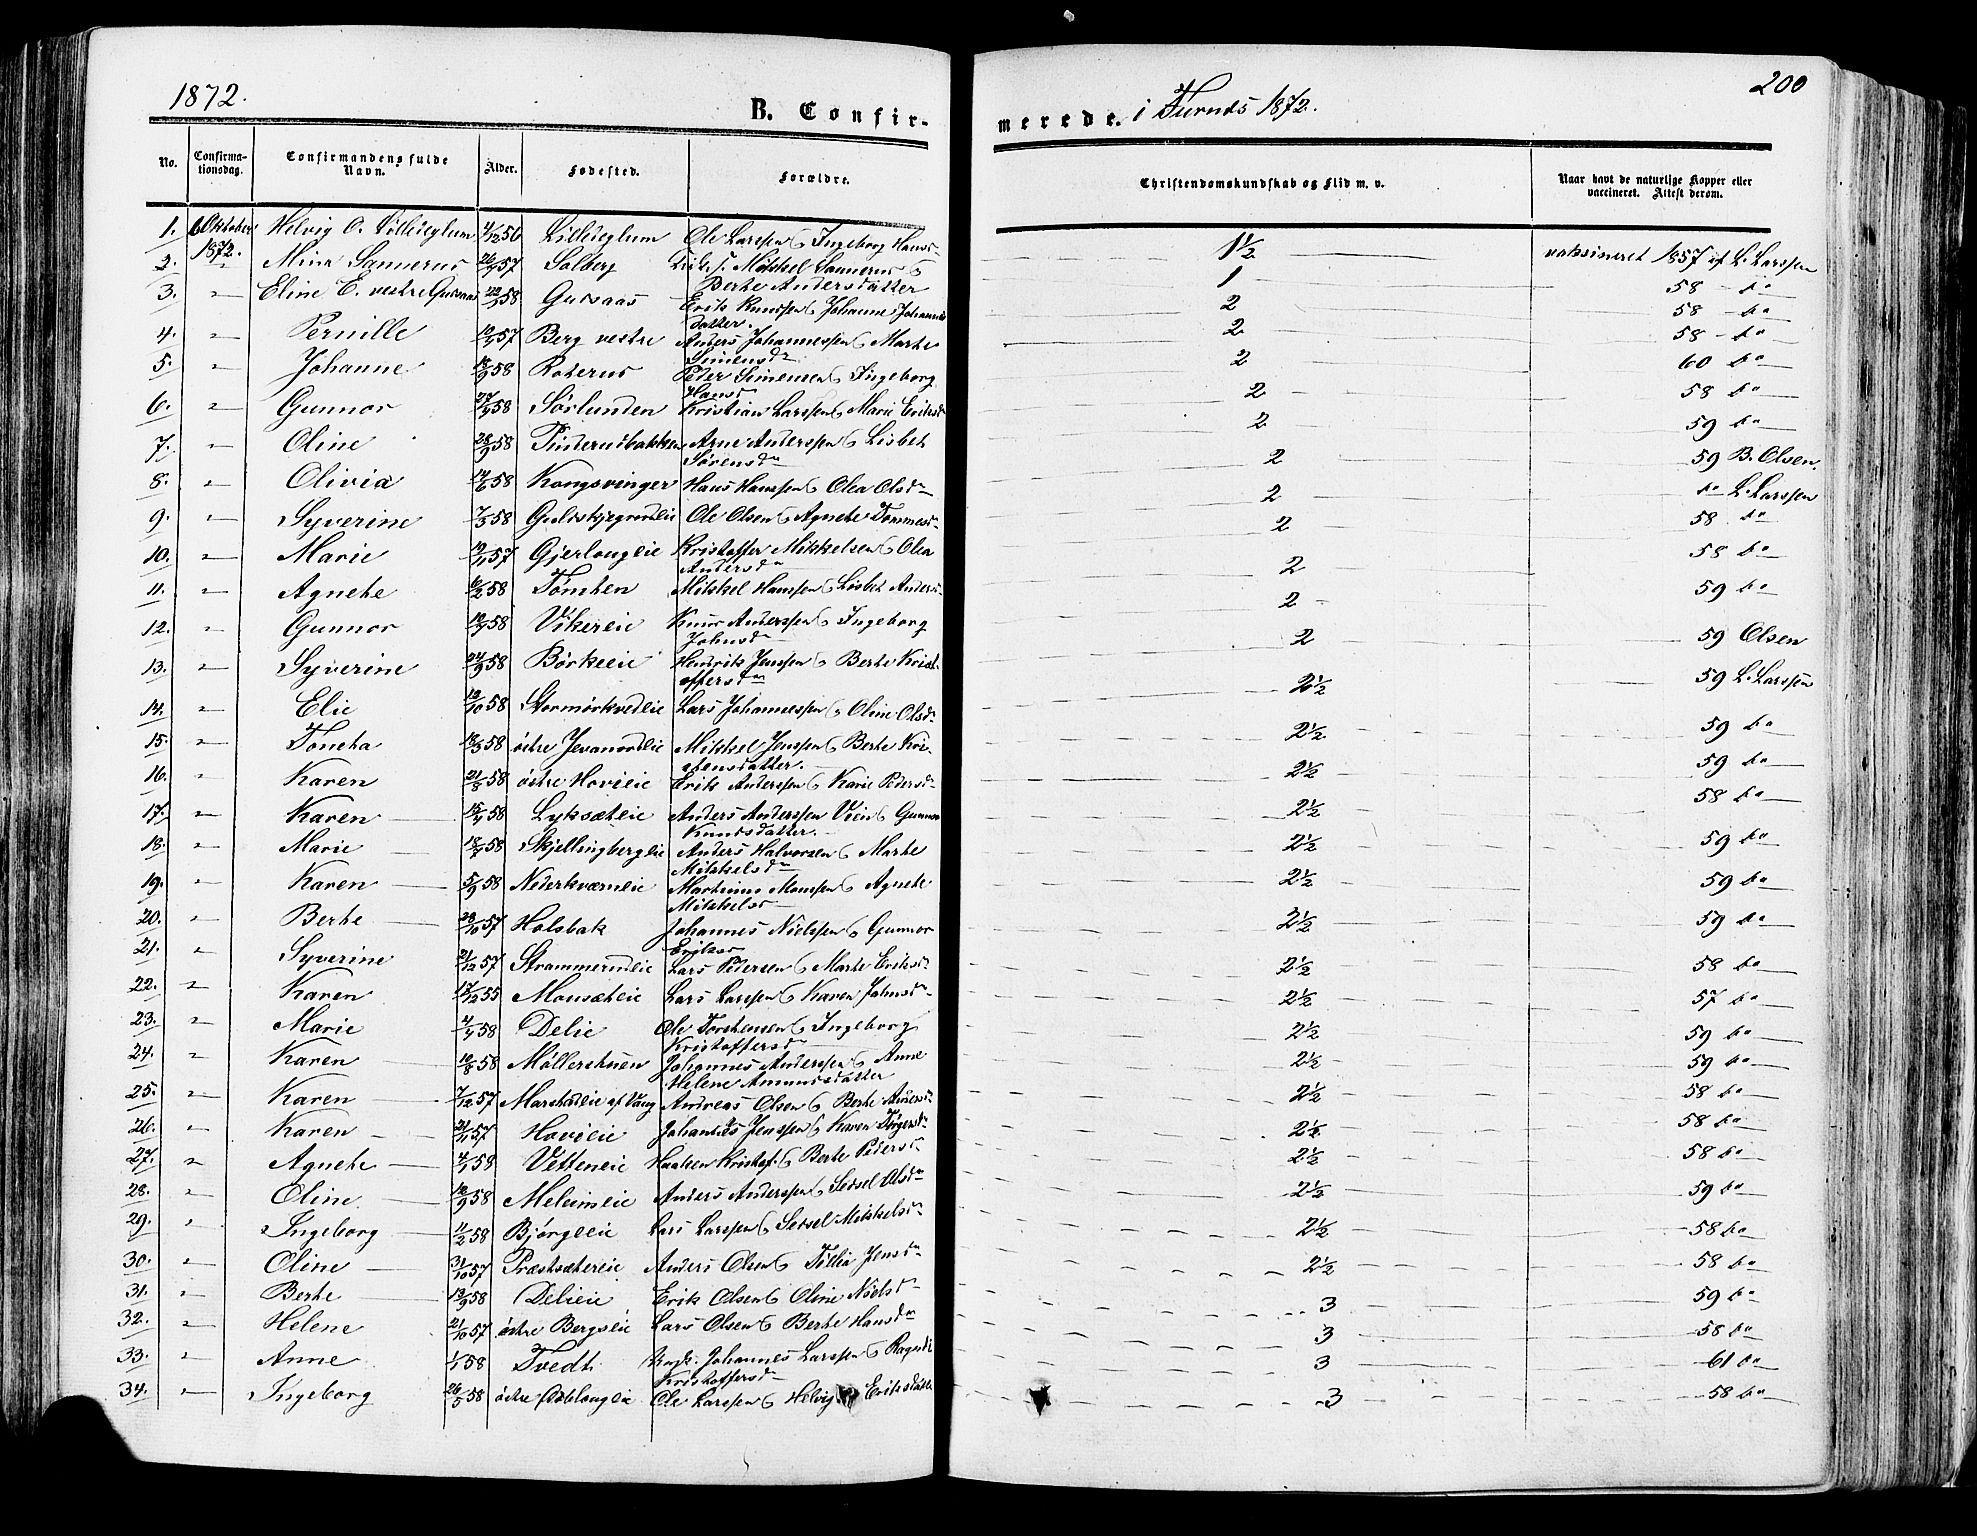 1872.
B. Confir-
merede. i Furnæs 1872.
200
No.
Confirma-
tionsdag.
Confirmandens fulde
Navn.
Alder.
Fødested.
Forældre.
Christendomskundskab og Flid m. v.
Naar havt de naturlige Kopper eller
vaccineret. Attest derom.
1. 6 Oktober 1872. Helvig O. Lilleeglum 4/12 56 Lilleeglum Ole Larssen & Ingeborg Hansd 1 1/2 vaksineret 1857 af L. Larssen
2. " Mina Sannerus 26/9 57 Solberg Mikkel Sannerus & Berthe Andersdatter 1 58 do
3. " Eline E. vestre Gursaas 22/1 58 Gursaas Erik Knudsen & Johanne Johannesdatter. 2 58 do
4. " Pernille 57 Berg vestre Anders Johannessen & Marthe Simensdr 2 58 do
5. " Johanne 58 Roterud Peder Simensen & Ingeborg Hansd 2 60 do
6. " Gunnor 58 Sørlunden Kristian Larssen & Marie Eriksdr 2 58 do
7. " Oline 58 Arne Anderssen & Lisbet Sørensdr 2 59 do
8. " Olivia 14/6 58 Kongsvinger Hans Hanssen & Olea Olsdr 2 59 B. Olsen.
9. " Syverine 7/3 58 Ole Olsen & Agnethe Tommesdr 2 do L. Larssen
10. " Marie 57 Gjerlougeie Kristoffer Mikkelsen & Olea Andersdr 2 58 do
11. " Agnethe 6/2 58 Tomten Mikkel Hanssen & Lisbet Andersd 2 58 do
12. " Gunnor 58 Vikereie Knud Anderssen & Ingeborg Johnsdr 2 59 do
13. " Syverine 24/9 58 Børkeeie Hendrik Jenssen & Berthe Kristoffersdr 2 59 Olsen
14. " Elie 58 Stormørkvedeie Lars Johannessen & Oline Olsdr 2 1/2 59 L. Larssen
15. " Toneta 58 østre Jevanordeie Mikkel Jenssen & Berthe Kristensdatter. 2 1/2 59 do
16. " Karen 21/8 58 østre Hovieie Erik Anderssen & Karie Pedersdr 2 1/2 59 do
17. " Karen 58 Lyksæteie Anders Anderssen Vien & Gunnor Knudsdatter. 2 1/2 58 do
18. " Marie 58 Skjellingbergeie Anders Halvorsen & Marthe Mikkelsdr 2 1/2 59 do
19. " Karen 5/9 58 Nederkværneie Martinus Monssen & Agnethe Mikkelsd 2 1/2 59 do
20. " Berthe 28/10 57 Holsbak Johannes Nielssen & Gunnor Eriksd 2 1/2 59 do
21. " Syverine 21/12 57 Strammerudeie Lars Pedersen & Marthe Eriksdr 2 1/2 58 do
22. " Karen 17/12 55 Monsæteie Lars Larssen & Karen Johnsdr 2 1/2 57 do
23. " Marie 58 Delie Ole Torstensen & Ingeborg Kristoffersdr 2 1/2 59 do
24. " Karen 10/8 58 Møllerstuen Johannes Anderssen & Anne Helene Amundsdatter 2 1/2 59 do
25. " Karen 7/12 57 af Vang Andreas Olsen & Berthe Andersdr 2 1/2 58 do
26. " Karen 21/11 57 Hovieie Johannes Jenssen & Karen 2 1/2 58 do
27. " Agnethe 4/1 58 Vetteneie Haaken Kristof. & Berthe Pedersdr 2 1/2 58 do
28. " Oline 58 Meleimeie Anders Anderssen & Sedsel Olsdr 2 1/2 59 do
29. " Ingeborg 11/2 58 Bjørgeeie Lars Larssen & Sedsel Mikkelsdr 2 1/2 58 do
30. " Oline 31/10 57 Præstsætereie Anders Olsen & Tillia Jensdr 2 1/2 58 do
31. " Berthe 13/9 58 Delieie Erik Olsen & Oline Nielsdr 3 59 do
32. " Helene 21/10 57 østre Bergseie Lars Olsen & Berthe Hansdr 3 58 do
33. " Anne 1/1 58 Tvedt Johannes Larssen & Kristoffersdr 3 61 do
34. " Ingeborg 26/5 58 østre Ole Larssen & Helvig Eriksdatter 3 58 do